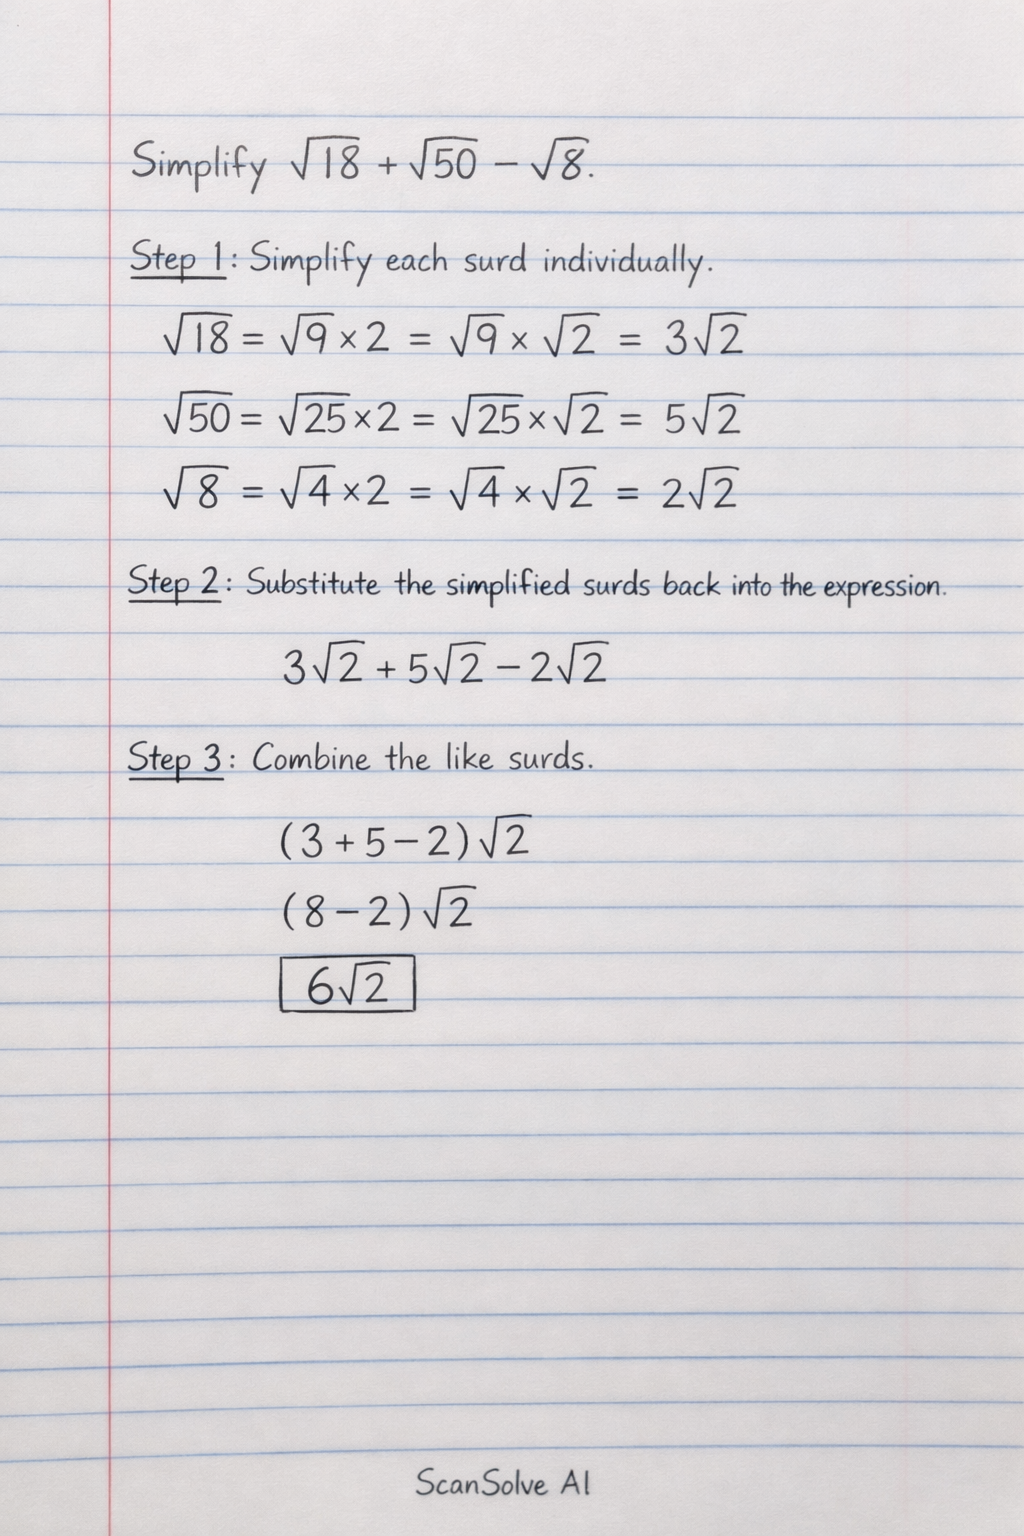 Simplify √18 + √50 − √8.
Step 1: Simplify each surd individually.
√18 = √9 × 2 = √9 × √2 = 3√2
√50 = √25 × 2 = √25 × √2 = 5√2
√8 = √4 × 2 = √4 × √2 = 2√2
Step 2: Substitute the simplified surds back into the expression.
3√2 + 5√2 − 2√2
Step 3: Combine the like surds.
(3 + 5 − 2)√2
(8 − 2)√2
6√2
ScanSolve AI